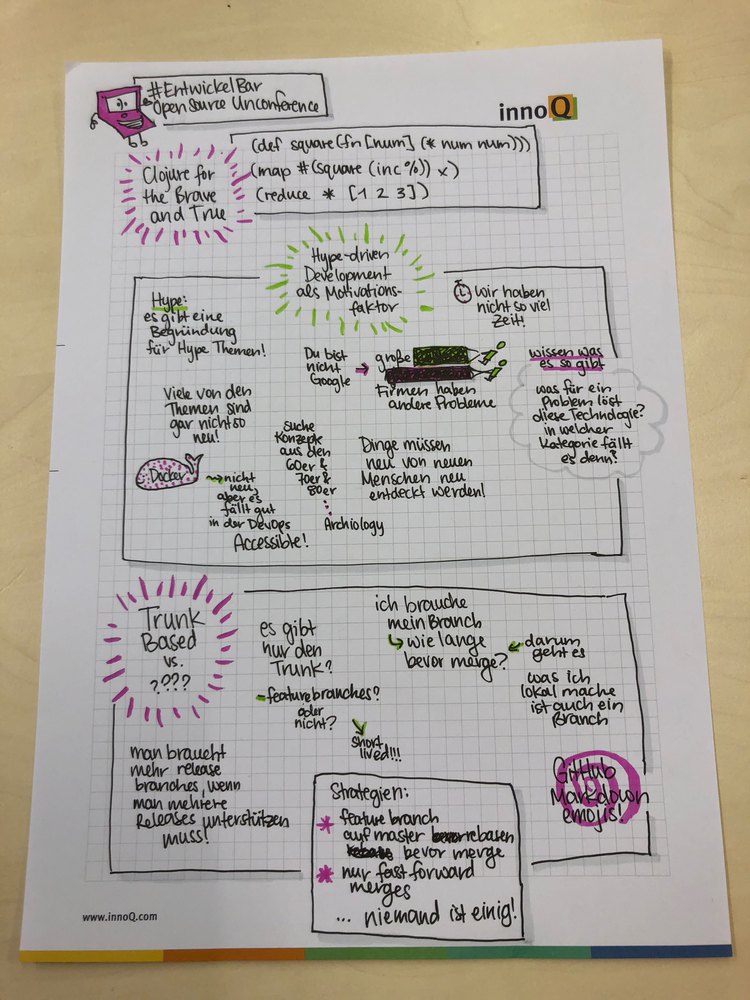 #EntwickelBar
Open Source Unconference
innoQ
Clojure for
the Brave
and True
(def square (fn [num] (* num num)))
(map #(square (inc %)) x)
(reduce * [1 2 3])
Hype-driven
Development
als Motivations-
faktor
Hype:
es gibt eine
Begründung
für Hype Themen!
Wir haben
nicht so viel
Zeit!
Du bist
nicht
Google
große
Firmen haben
andere Probleme
wissen was
es so gibt
was für ein
Problem löst
diese Technologie?
in welcher
Kategorie fällt
es denn?
Viele von den
Themen sind
gar nicht so
neu!
Docker
nicht
neu,
aber es
fällt gut
in der DevOps
Accessible!
suche
Konzepte
aus den
60er &
70er &
80er
Archiology
Dinge müssen
neu von neuen
Menschen neu
entdeckt werden!
Trunk
Based
vs.
????
es gibt
nur den
Trunk?
featurebranches?
oder
nicht?
short
lived!!!
ich brauche
mein Branch
wie lange
bevor merge?
darum
geht es
was ich
lokal mache
ist auch ein
Branch
man braucht
mehr release
branches, wenn
man mehrere
Releases unterstützen
muss!
GitHub
Markdown
emojis!
Strategien:
* feature branch
auf master rebasen
bevor merge
* nur fast forward
merges
... niemand ist einig!
www.innoQ.com